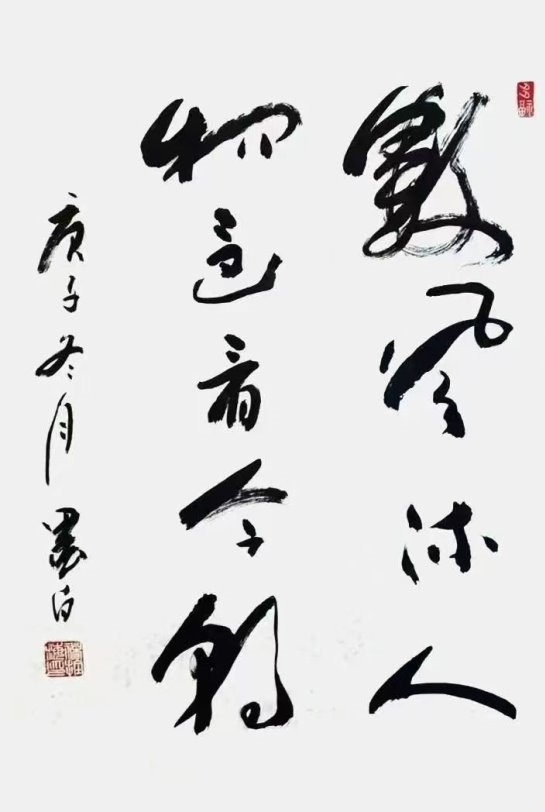 数风流人
物还看今朝
庚子冬月墨白